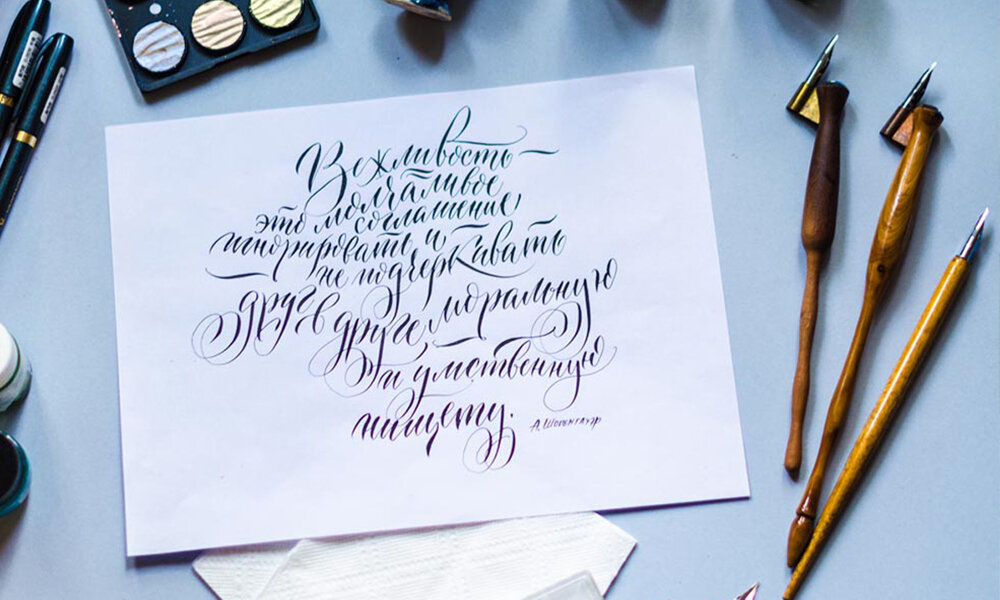 Вежливость –
это молчаливое
соглашение
игнорировать и
не подчеркивать
друг в друге моральную
и умственную
нищету.
А. Шопенгауэр